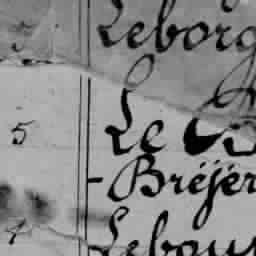 5 Leborg
5 Le B
- Bréjér
4 Lebour